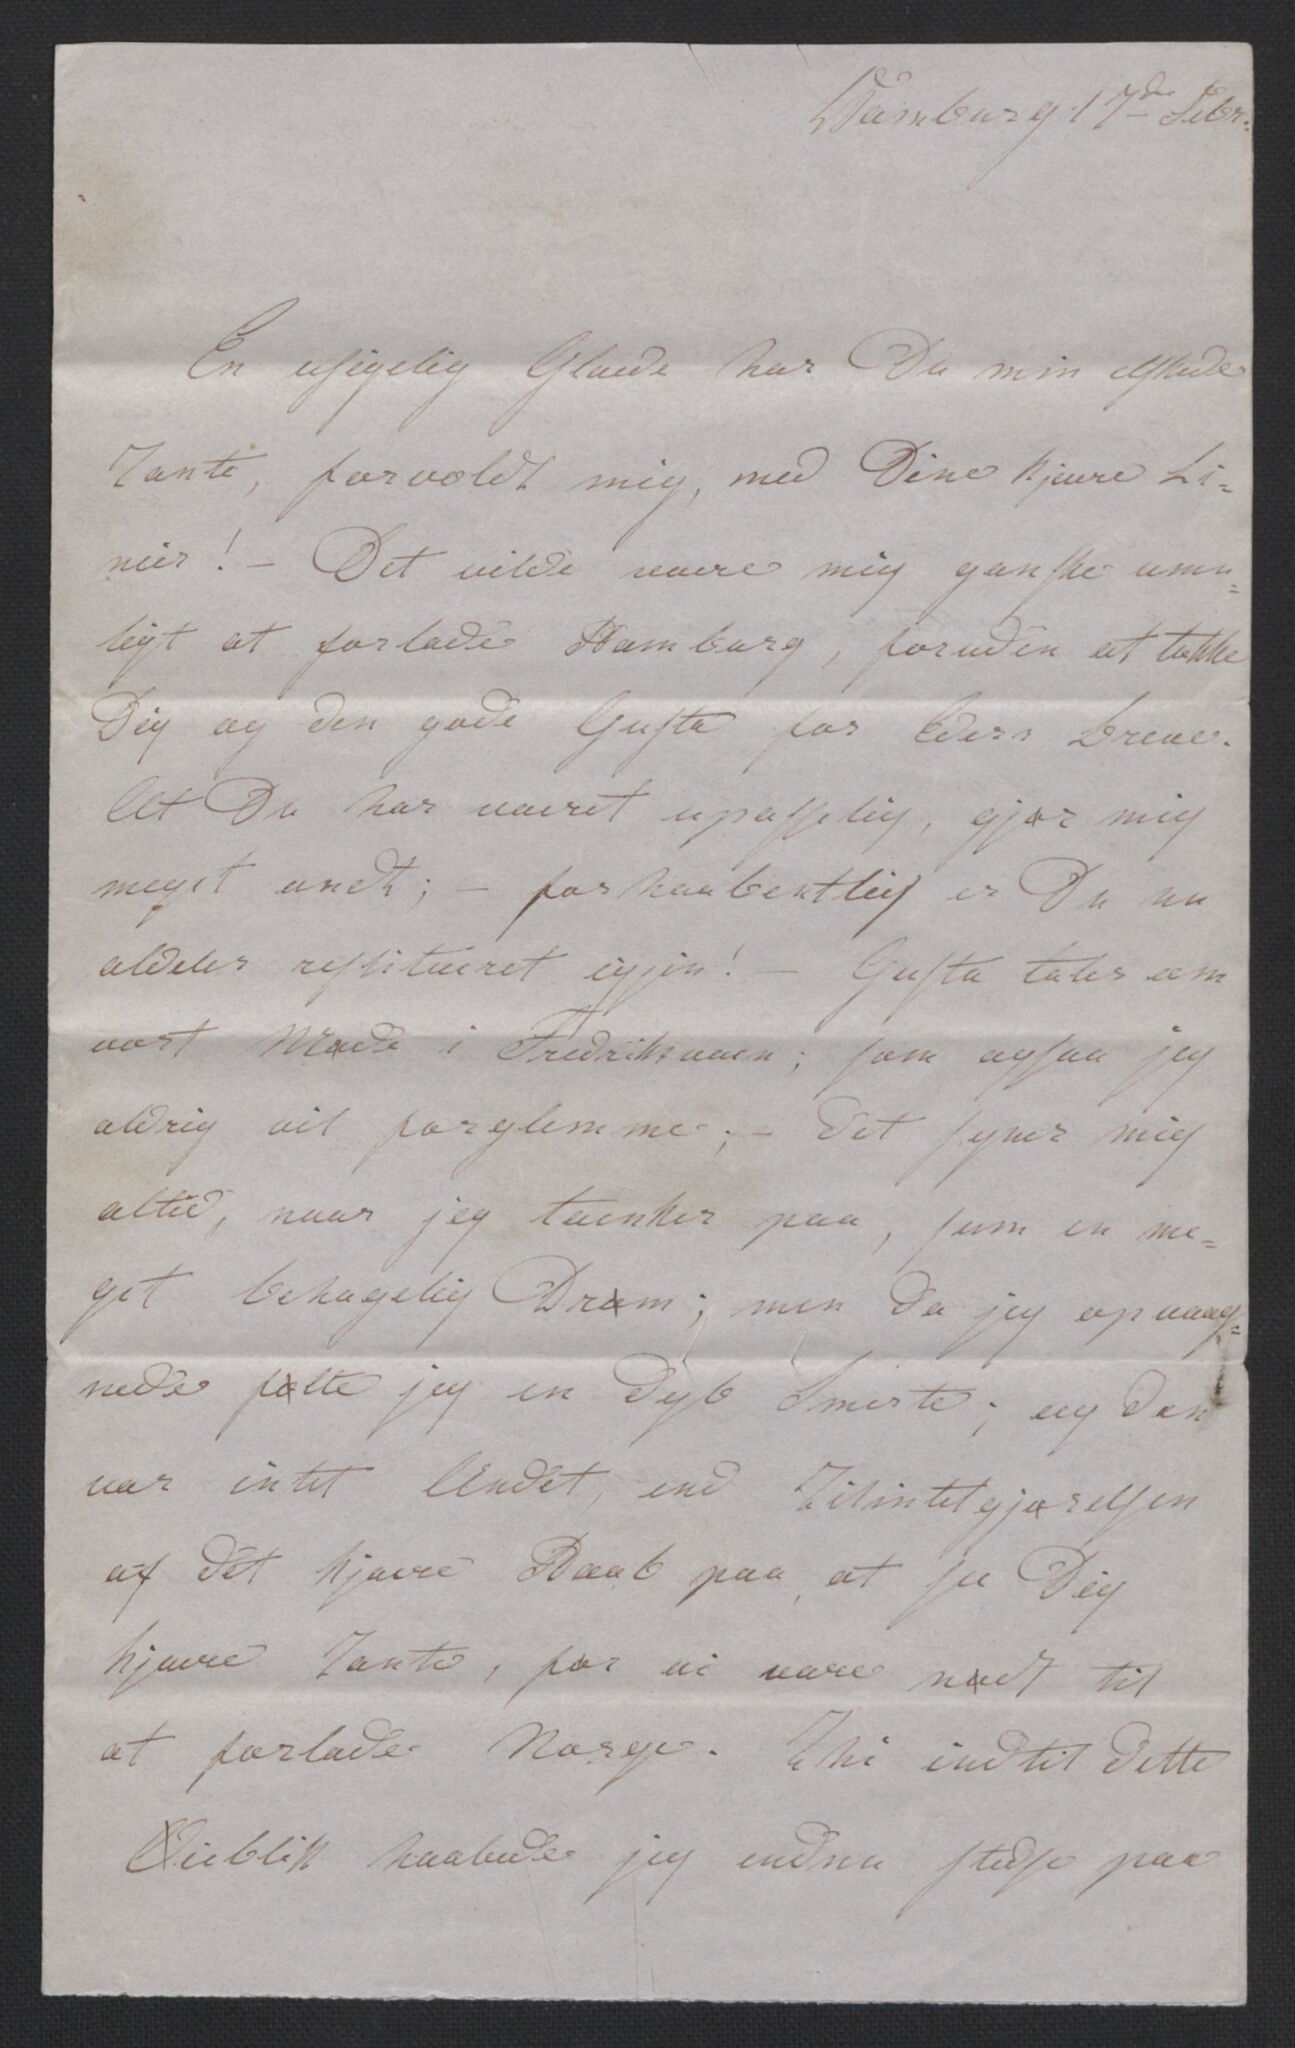 Hamburg 17de Febr.
En usigelig Glæde har Du min elskede
Tante, forvoldt mig, med Dine kjære Li-
nier! - Det vilde være mig ganske umu=
ligt at forlade Hamburg, foruden at takke
Dig og den gode Gusta for Eders Breve.
At Du har været upasselig, gjør mig
meget ondt; - forhaabentlig er Du nu
aldeles restitueret igjen! - Gusta taler om
vort Møde i Fredriksværn; som ogsaa jeg
aldrig vil forglemme; - det synes mig
altid, naar jeg tænker paa, som en me=
get behagelig Drøm; men da jeg opvaag=
nede følte jeg en dyb Smerte; og den
var intet Andet, end Tilintetgjørelsen
af det kjære Haab paa, at se Dig
kjære Tante, før vi vare nødt til
at forlade Norge. Thi indtil dette
Øieblik haabede jeg endnu stedse paa